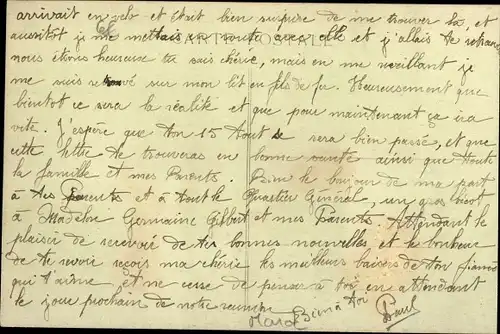 arrivait en velo et était bien surprise de me trouver là, et
aussitot je me mettais en route avec elle et j'allais te retrouver
CARTE POSTALE
nous étions heureux tu sais chérie, mais en me reveillant je
me suis retrouvé sur mon lit en fils de fer. Heureusement que
bientot ce sera la réalité et que pour maintenant ça ira
vite. J'espère que ton 15 Aout se sera bien passé, et que
cette lettre te trouveras en bonne santé ainsi que toute
la famille et mes Parents. Bien le bonjour de ma part
à tes Parents et à tout le Quartier Général, un gros bécot
à Madelon Germaine Gilbert et mes Parents. Attendant le
plaisir de recevoir de tes bonnes nouvelles, et le bonheur
de te revoir reçois ma chérie les meilleurs baisers de ton fiancé
qui t'aime et ne cesse de penser à toi en attendant
le jour prochain de notre reunion
Bien à toi
Paul